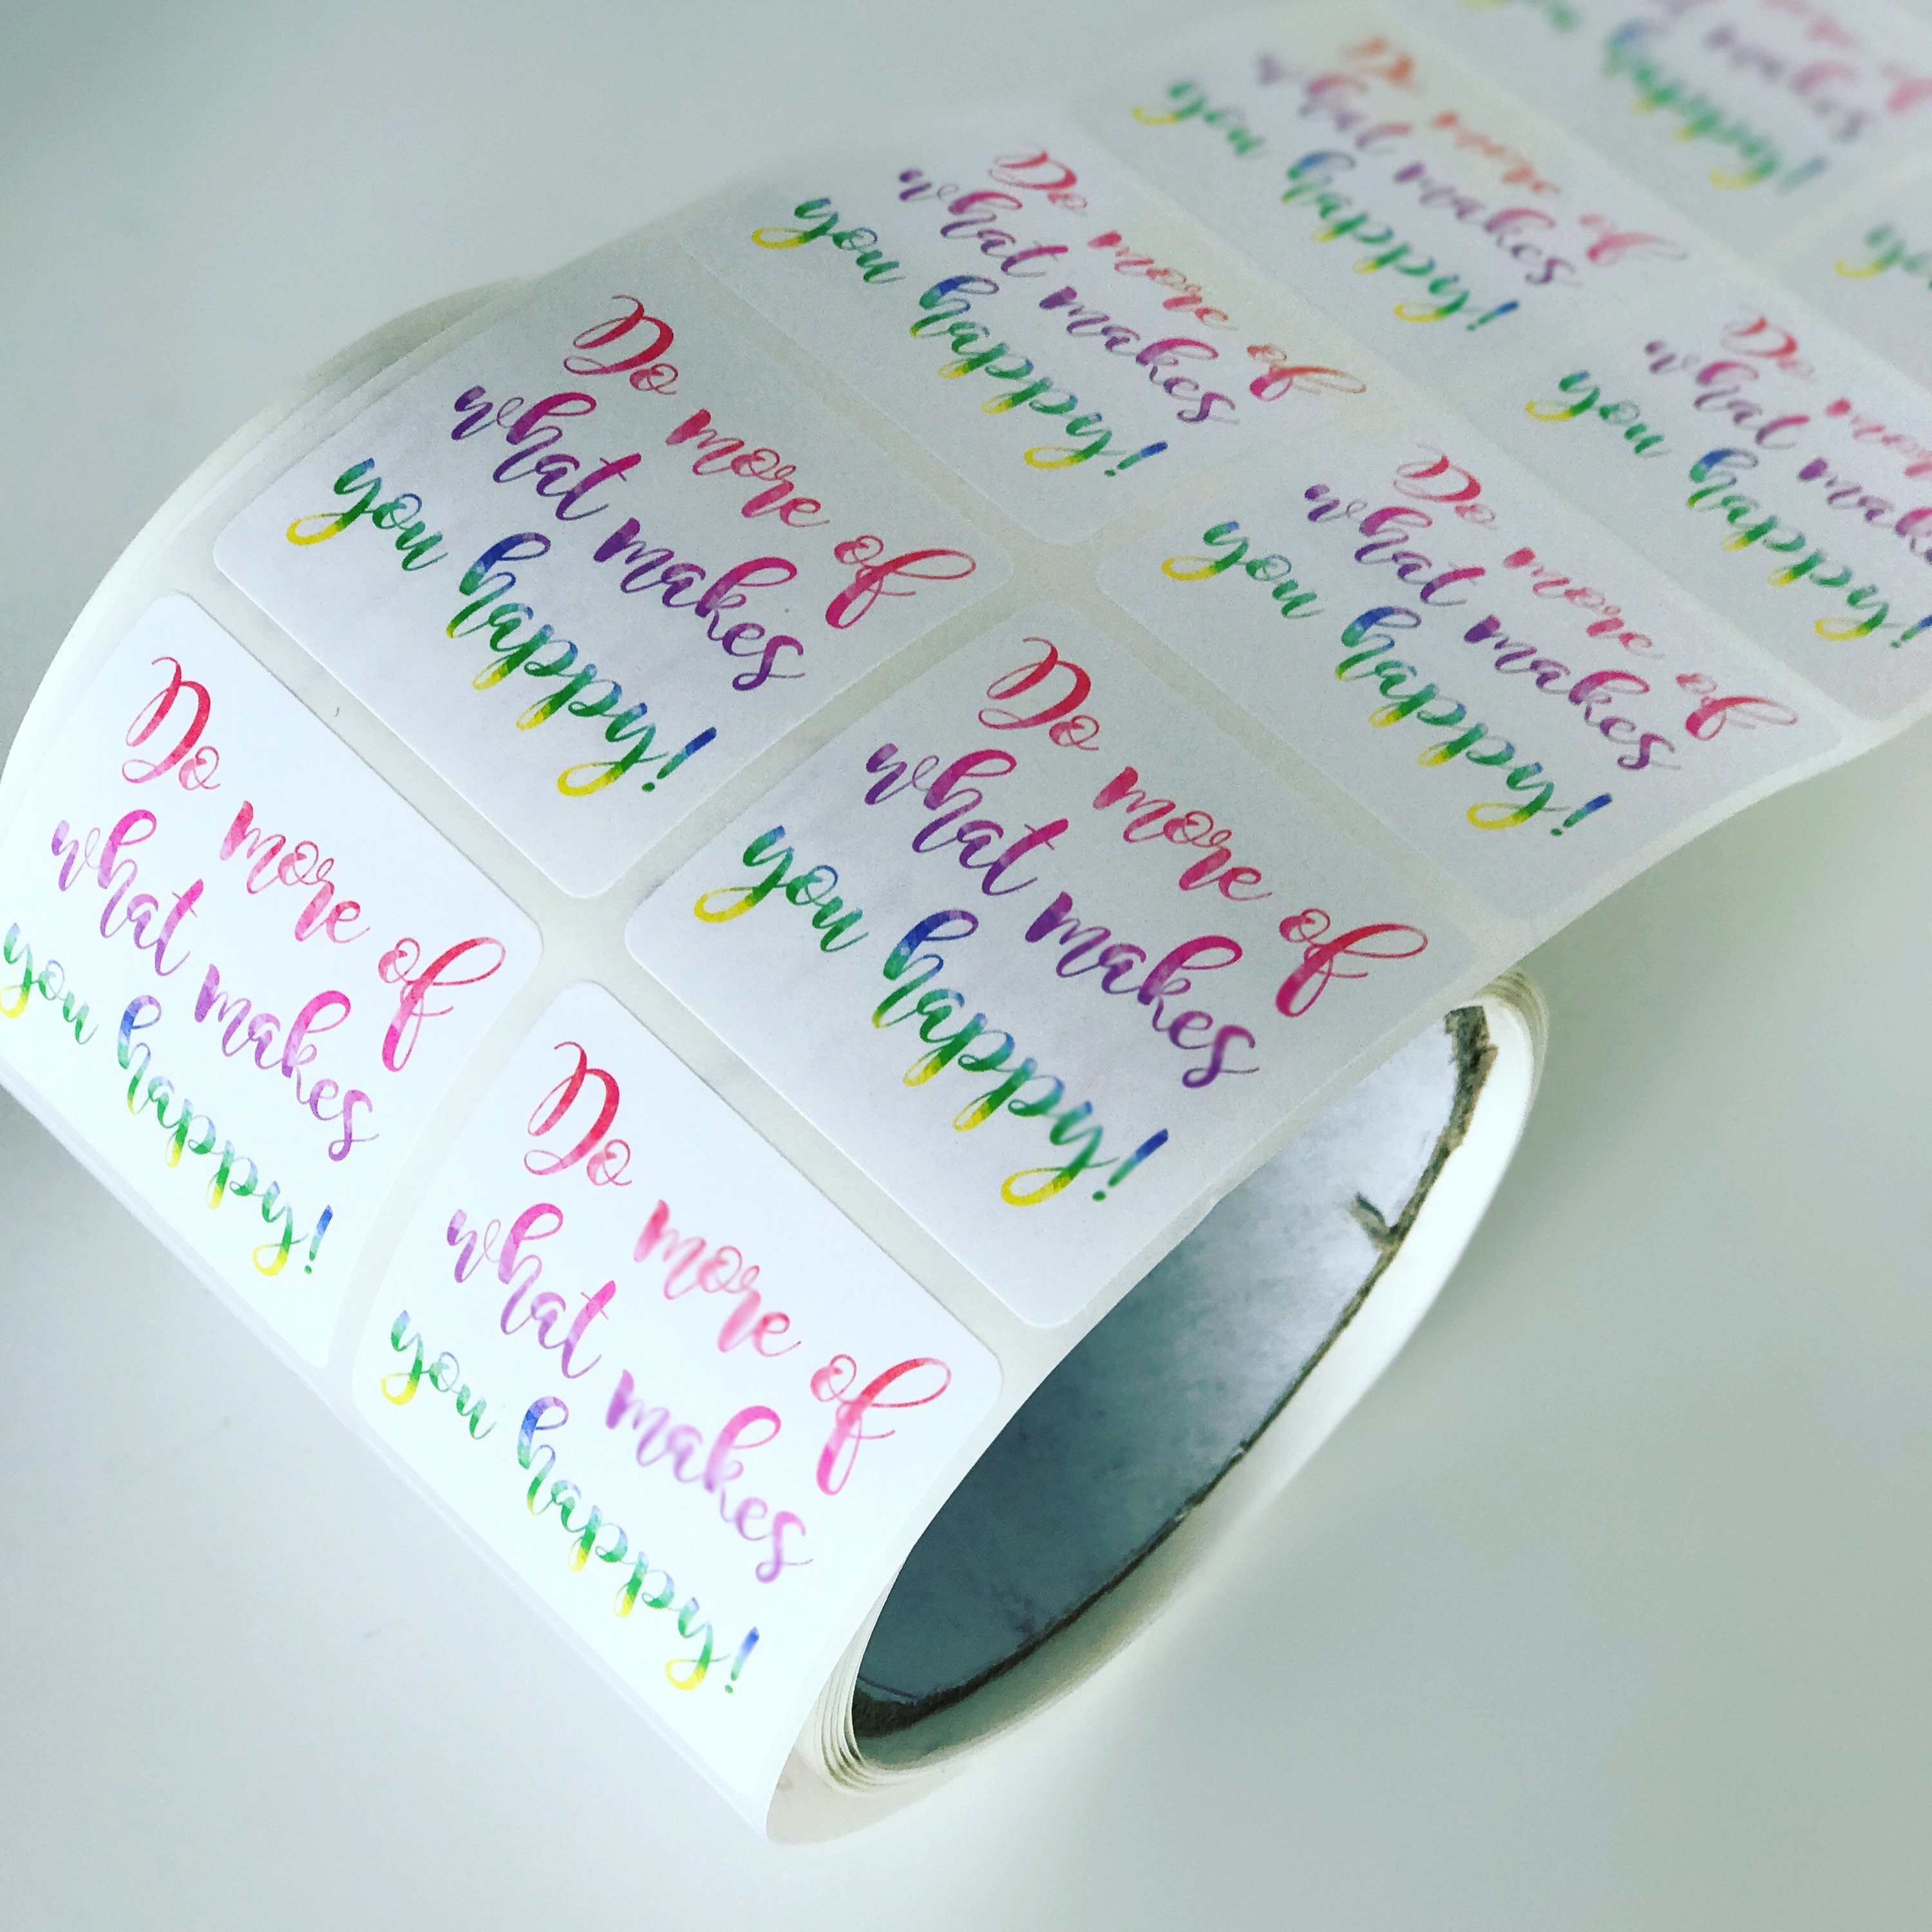 makes
happy!
Do more of
what makes
you happy!
Do more of
what makes
you happy!
Do
what
you happy!
Do more of
what makes
you happy!
Do more of
what makes
you happy!
Do more of
what makes
you happy!
Do more of
what makes
you happy!
Do more of
what makes
you happy!